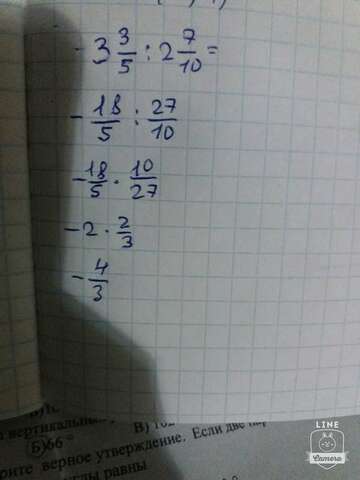 - 3 3/5 : 2 7/10 =
- 18/5 : 27/10
- 18/5 · 10/27
- 2 · 2/3
- 4/3
вертикальны
Б)66°
В) 102
верное утверждение. Если две
равны
LINE
Camera